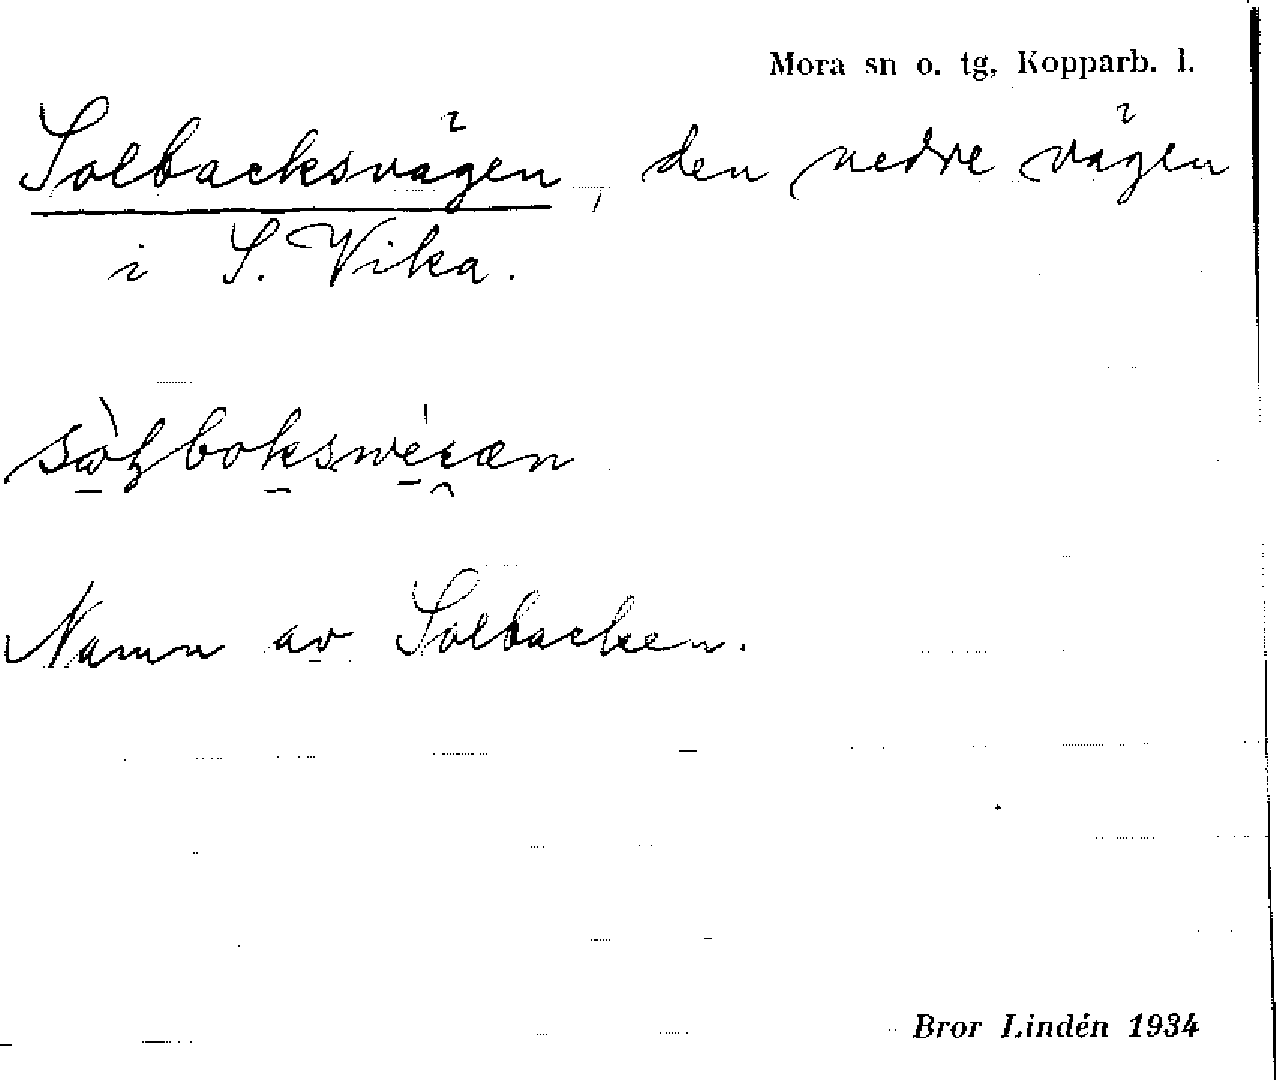 Mora sn o. tg, Kopparb. l.
Solbacksvägen, den nedre vägen
i S. Vika.
Namn av Solbacken.
Bror Lindén 1934